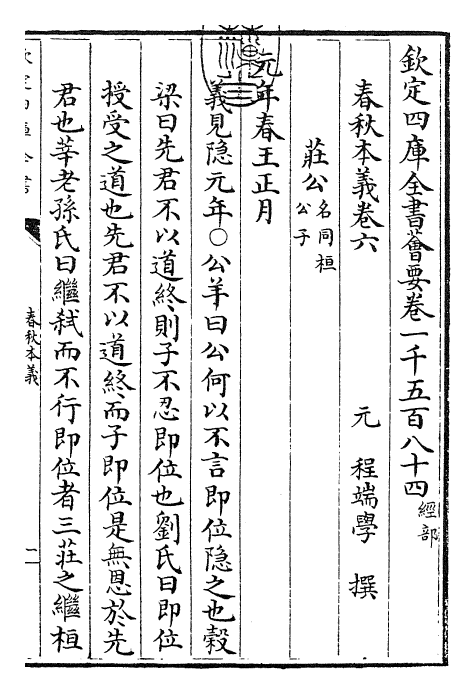 欽定四庫全書薈要卷一千五百八十四 經部
春秋本義卷六
元 程端學 撰
莊公 名同桓公子
元年春王正月
義見隱元年○公羊曰公何以不言即位隱之也穀
梁曰先君不以道終則子不忍即位也劉氏曰即位
授受之道也先君不以道終而子即位是無恩於先
君也莘老孫氏曰繼弒而不行即位者三莊之繼桓
春秋本義
一